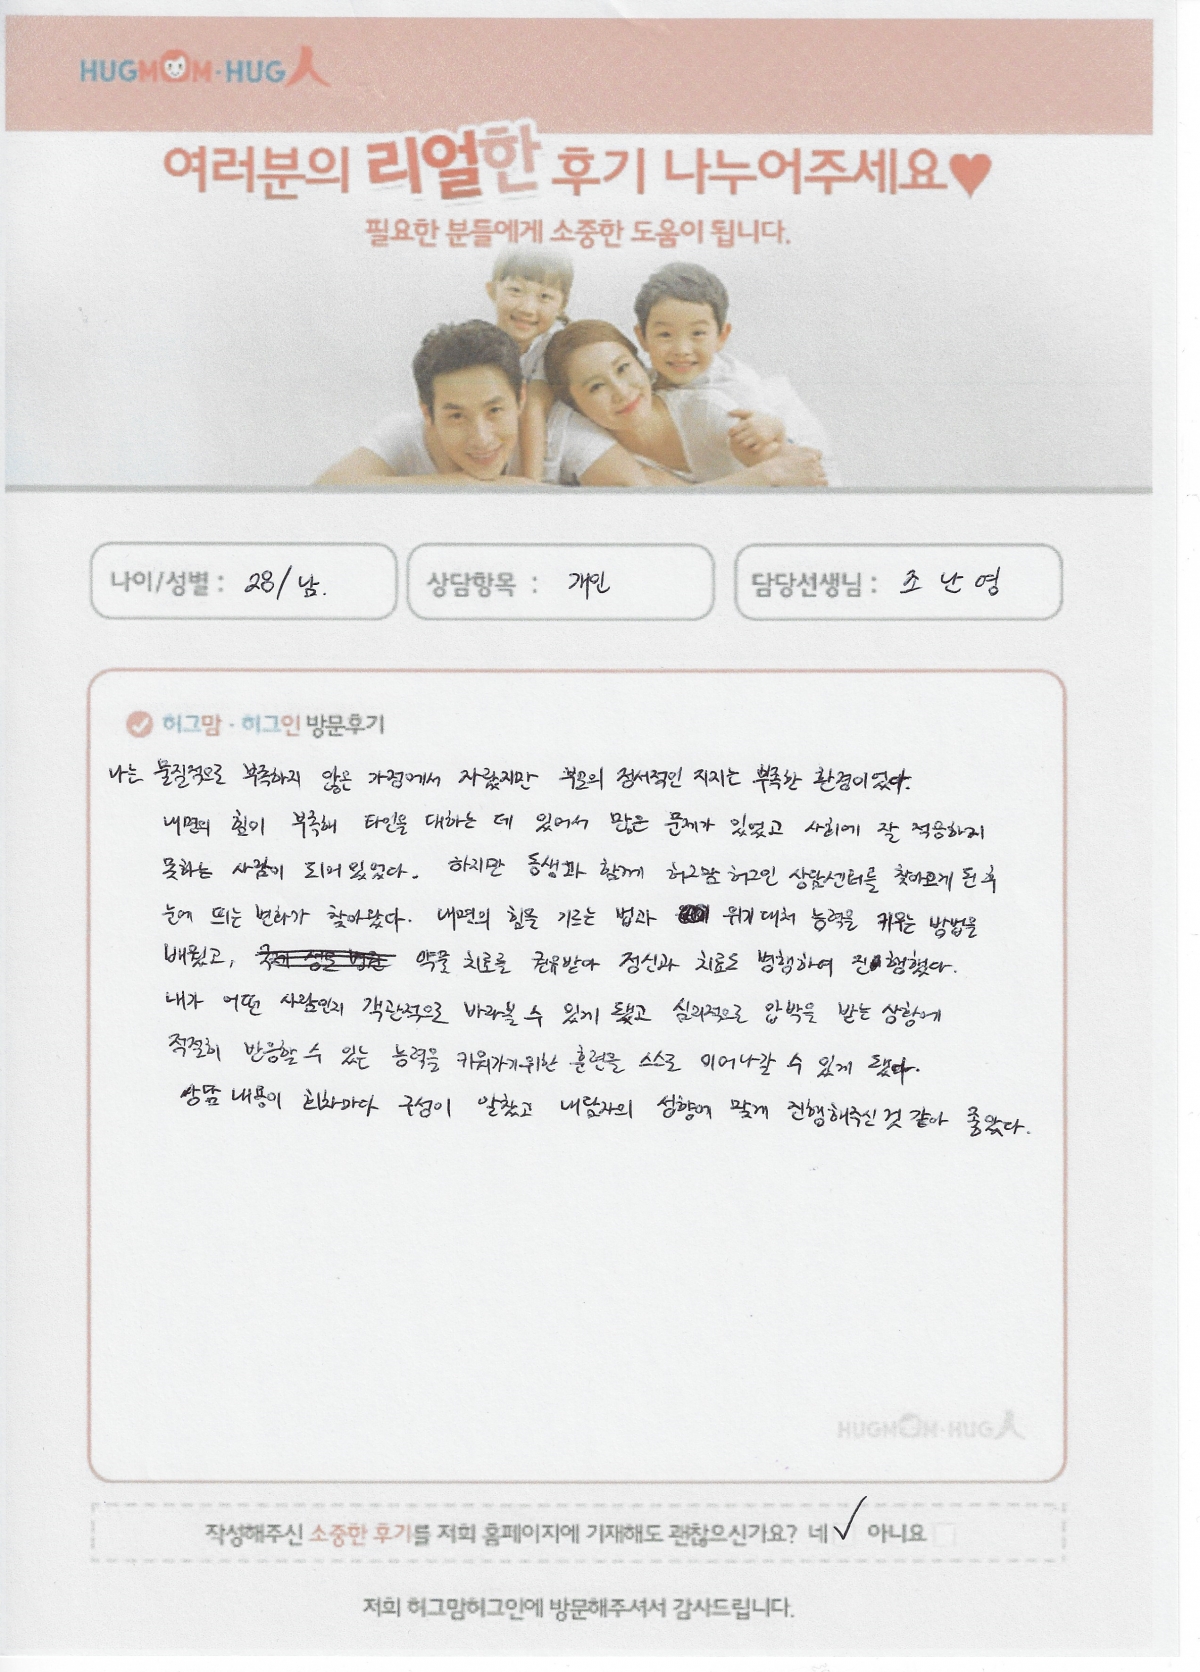 HUGMOM·HUG人
여러분의 리얼한 후기 나누어주세요♥
필요한 분들에게 소중한 도움이 됩니다.
나이/성별 : 28/남. 상담항목 : 개인 담당선생님 : 조난영
허그맘·허그인 방문후기
나는 물질적으로 부족하지 않은 가정에서 자랐지만 부모의 정서적인 지지는 부족한 환경이었다.
내면의 힘이 부족해 타인을 대하는 데 있어서 많은 문제가 있었고 사회에 잘 적응하지
못하는 사람이 되어 있었다. 하지만 동생과 함께 허그맘 허그인 상담센터를 찾아오게 된 후
눈에 띄는 변화가 찾아왔다. 내면의 힘을 기르는 법과 위기 대처 능력을 키우는 방법을
배웠고, 약물 치료를 권유받아 정신과 치료도 병행하여 진행했다.
내가 어떤 사람인지 객관적으로 바라볼 수 있게 됐고 심리적으로 압박을 받는 상황에
적절히 반응할 수 있는 능력을 키워가기위한 훈련을 스스로 이어나갈 수 있게 됐다.
상담 내용이 회차마다 구성이 알찼고 내담자의 성향에 맞게 진행해주신 것 같아 좋았다.
HUGMOM·HUG人
작성해주신 소중한 후기를 저희 홈페이지에 기재해도 괜찮으신가요? 네 ✓ 아니요 □
저희 허그맘허그인에 방문해주셔서 감사드립니다.